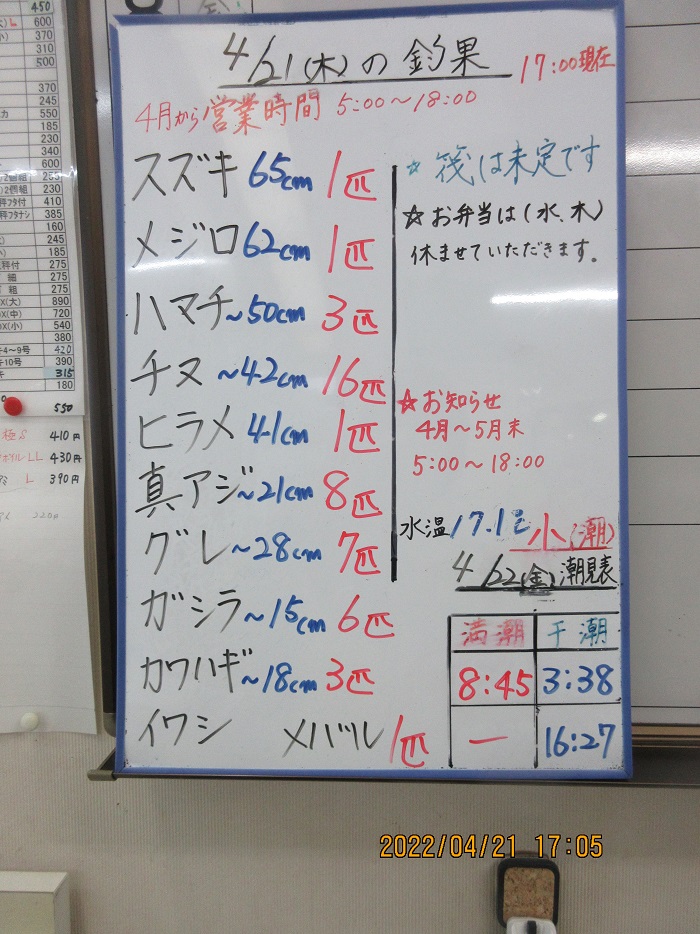 4/21(木)の釣果 17:00現在
4月から営業時間 5:00~18:00
スズキ 65cm 1匹
メジロ 62cm 1匹
ハマチ ~50cm 3匹
チヌ ~42cm 16匹
ヒラメ 41cm 1匹
真アジ ~21cm 8匹
グレ ~28cm 7匹
ガシラ ~15cm 6匹
カワハギ ~18cm 3匹
イワシ メバル 1匹
☆ 筏は未定です
☆お弁当は(水、木)
休ませていただきます。
☆お知らせ
4月~5月末
5:00~18:00
水温 17.1℃ 小(潮)
4/22(金)潮見表
満潮 干潮
8:45 3:38
ー 16:27
450
600
370
310
500
370
245
550
185
230
340
600
255
2個組 230
科フタ付 410
科フタナシ 385
160
245
185
科付 275
275
275
X(大) 890
X(中) 720
X(小) 540
380
4~9号 420
10号 390
315
180
550
極S 410円
ボイルLL 430円
L 390円
2022/04/21 17:05